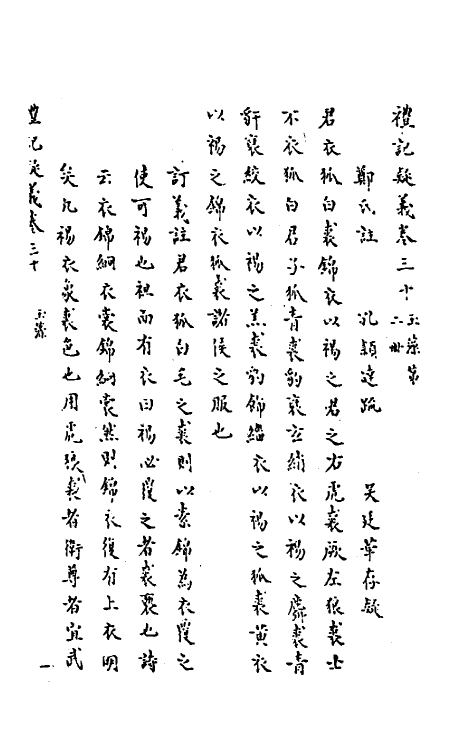 禮記疑義卷三十 玉藻第
六 冊
鄭氏註 孔穎達疏 吳廷華存疑
君衣狐白裘錦衣以裼之君之右虎裘厥左狼裘士
不衣狐白君子狐青裘豹褎玄綃衣以裼之麛裘青
豻褎絞衣以裼之羔裘豹飾緇衣以裼之狐裘黃衣
以裼之錦衣狐裘諸侯之服也
訂義註君衣狐白毛之裘則以素錦為衣覆之
使可裼也袒而有衣曰裼必覆之者裘褻也詩
云衣錦絅衣裳錦絅裳然則錦衣復有上衣明
矣凡裼衣象裘色也用虎狼裘者衛尊者宜武
禮記疑義卷三十 玉藻 一